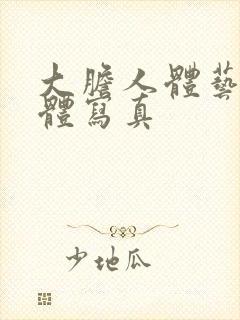 大膽人體藝
體寫真
少地瓜